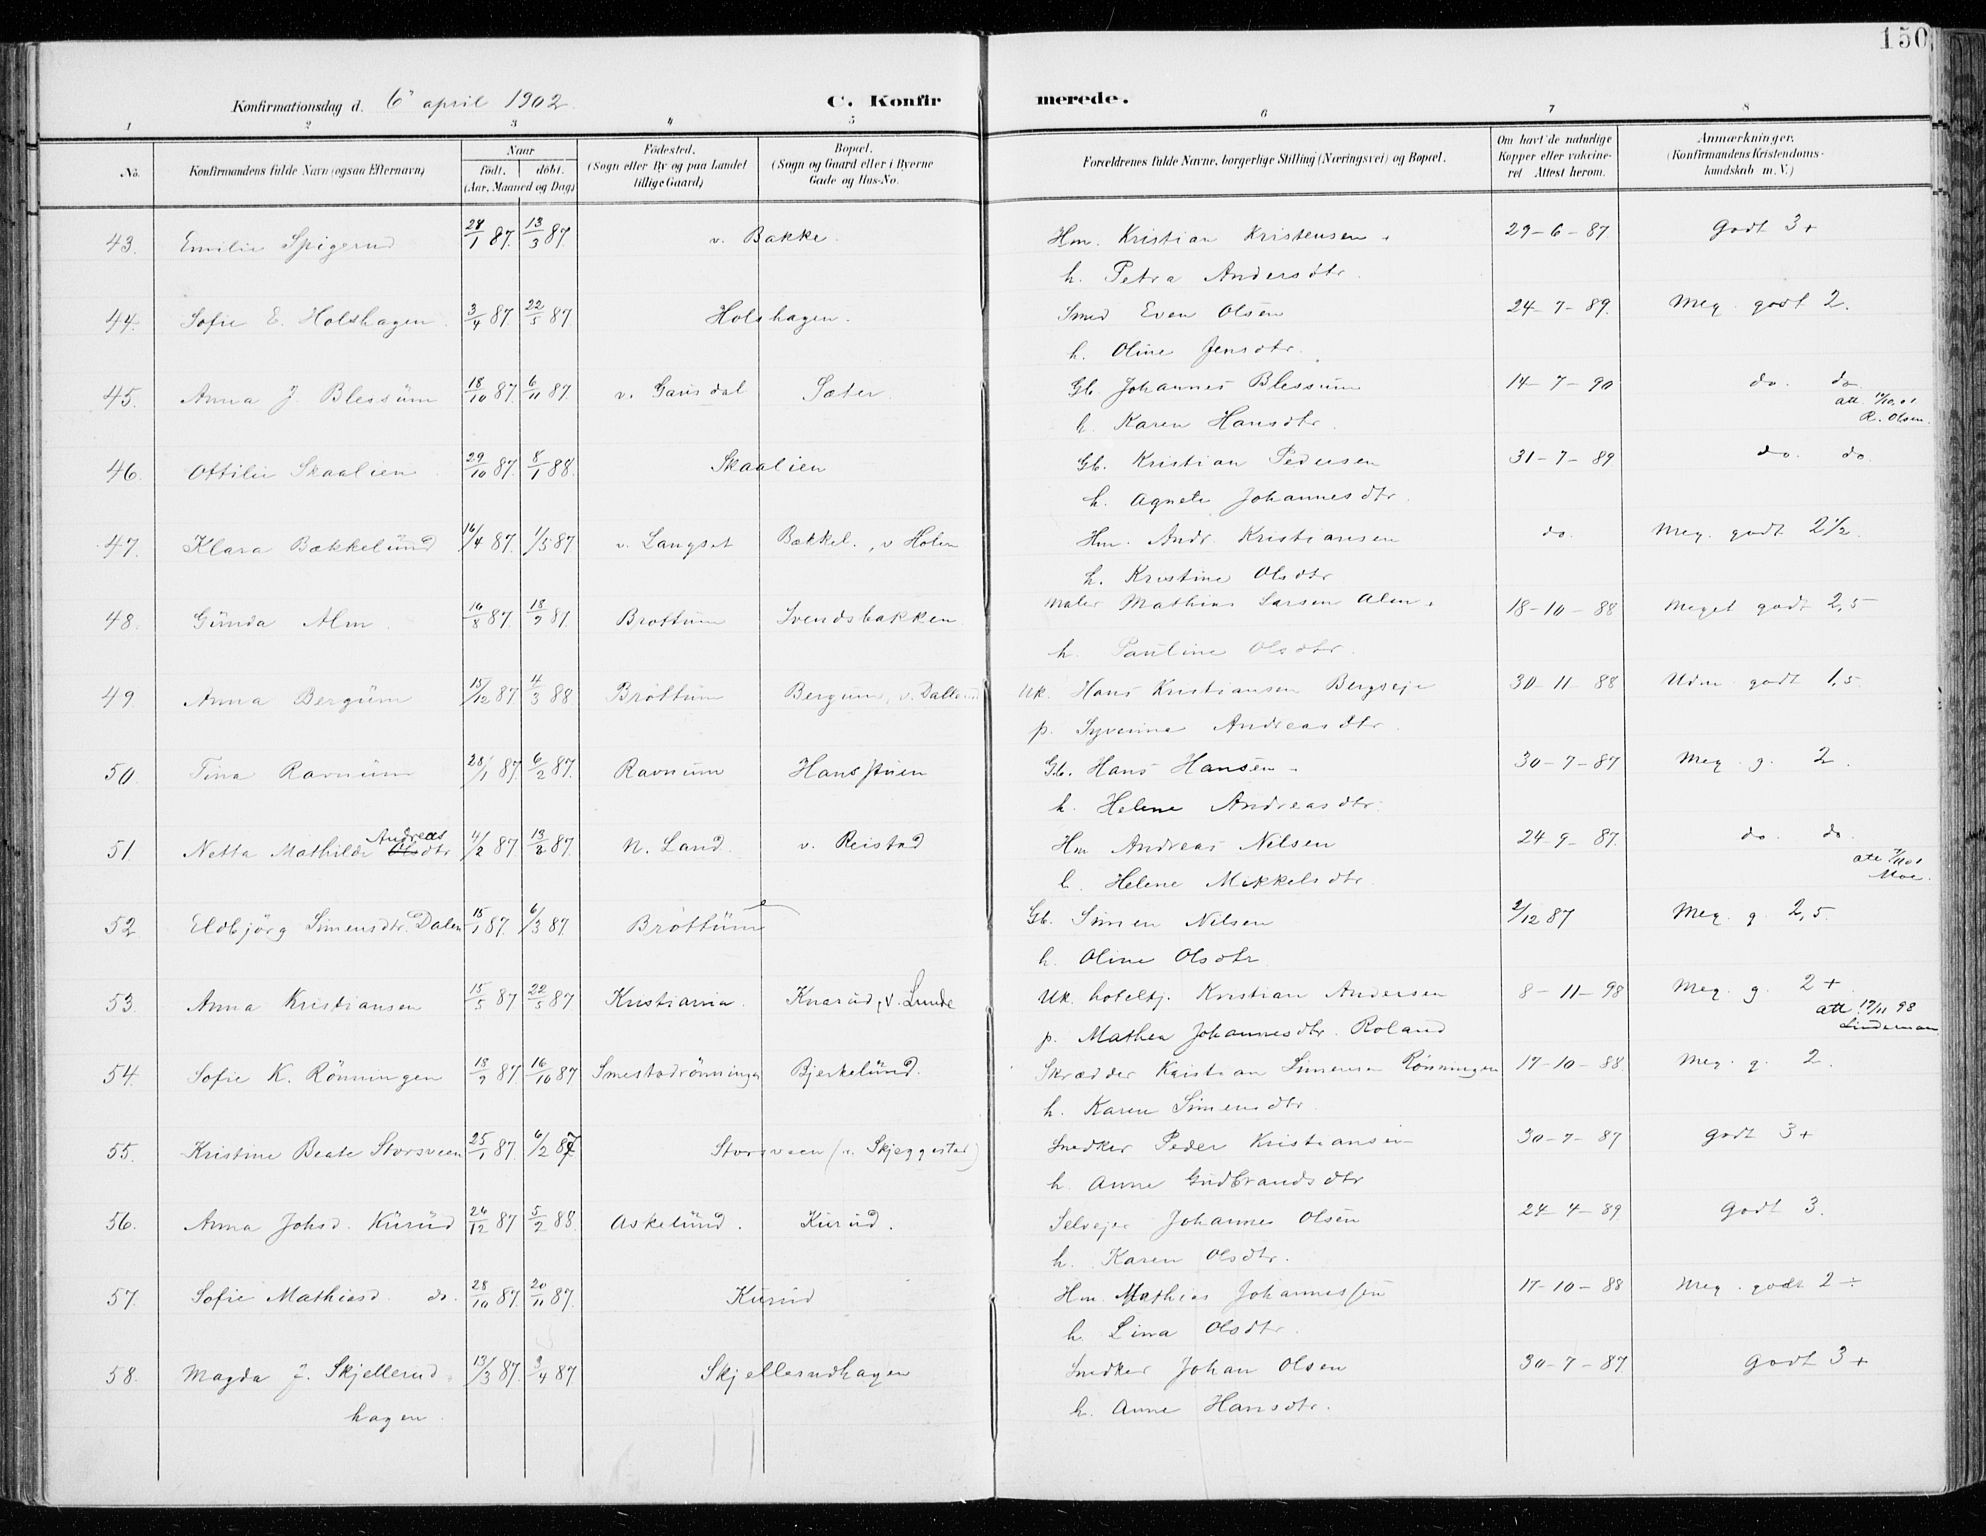 150
Konfirmationsdag d. 6' april 1902. C. Konfirmerede.
1 2 3 4 5 6 7 8
No. Konfirmandens fulde Navn (ogsaa Efternavn) Naar født. døbt. (Aar, Maaned og Dag) Fødested. (Sogn eller By og paa Landet tillige Gaard) Bopæl. (Sogn og Gaard eller i Byerne Gade og Hus-No. Forældrenes fulde Navne, borgerlige Stilling (Næringsvei) og Bopæl. Om havt de naturlige Kopper eller vakcineret Attest herom. Anmærkninger. (Konfirmandens Kristendomskundskab m. V.)
43. Emilie Spigerud 28/1 87. 13/3 87. v. Bakke. Hm. Kristian Kristensen. 29-6-87 Godt 3+
h. Petra Andersdtr.
44. Sofie E. Holshagen. 3/4 87 22/5 87 Holshagen. Smed Even Olsen 24-7-89. Meg. godt 2.
h. Oline Jensdtr.
45. Anna J. Blessum 18/10 87. 6/11 87. v. Gausdal Sæter. Gb. Johannes Blessum 14-7-90 do. do
att.
R. Olsen.
h. Karen Hansdtr.
46. Ottilie Skaalien 29/10 87. 8/1 88. Skaalien Gb. Kristian Pedersen 31-7-89 do. do.
h. Agnete Johannesdtr.
47. Klara Bækkelund 16/4 87. 1/5 87 v. Langset Bækkel., v Holen Hm. Andr. Kristiansen do. Meg. godt 2 1/2.
h. Kristine Olsdtr
48. Gunda Alm. 16/8 87. 18/9 87. Brøttum Svendsbakken Maler Mathias Larsen Alm. 18-10-88 Meget godt 2,5
h. Pauline Olsdtr.
49 Anna Bergum 15/12 87 4/3 88 Brøttum Bergum, v. Uk. Hans Kristiansen Bergseje 30-11-88 Udm. godt 1,5.
p. Syverine Andreasdtr.
50. Tina Ravnum 28/1 87. 6/2 87. Ravnum Hansstuen Gb. Hans Hansen. 30-7-87 Meg. g. 2.
h. Helene Andreasdtr.
51. Netta Mathilde Andreasdtr 4/2 87 13/2 87. N. Land. v. Reistad Hm Andreas Nilsen 24-9-87. do. do.
att
Moe.
h. Helene Mikkelsdtr.
52 Eldbjörg Simensdtr. Dalen 15/1 87. 6/3 87. Brøttum Gb. Simen Nilsen 2/12 87 Meg. g. 2,5.
h. Oline Olsdtr
53. Anna Kristiansen 15/5 87 22/5 87 Kristiania. Knarud, v. Lunde Uk. hotelbj. Kristian Andersen 8-11-98 Meg. g. 2+
att 17/11 98
Lindeman
p. Mathea Johannesdtr. Roland
54. Sofie K. Rönningen 18/9 87. 16/10 87 Smestadrønningen Bjerkelund. Skrædder Kristian Simensen Rønningen 17-10-88. Meg. g. 2.
h. Karen Simensdtr.
55. Kristine Beate Storsveen 25/1 87. 6/2 87 Storsveen (v. Skjeggestad) Snedker Peder Kristiansen 30-7-87 Godt 3+
h. Anne Gudbrandsdtr
56. Anna Johsd. Kurud 26/12 87 5/2 88. Askelund. Kurud. Selvejer Johannes Olsen 24-4-89 Godt 3.
h. Karen Olsdtr.
57. Sofie Mathiasd. do. 28/10 87. 20/11 87. Kurud Hm. Mathias Johannessen 17-10-88 Meg. godt 2÷
h. Lina Olsdtr.
58. Magda J. Skjellerud- 13/3 87. 3/4 87 Skjellerudhagen Snedker Johan Olsen 30-7-87 Godt 3+
hagen.
h. Anne Hansdtr.